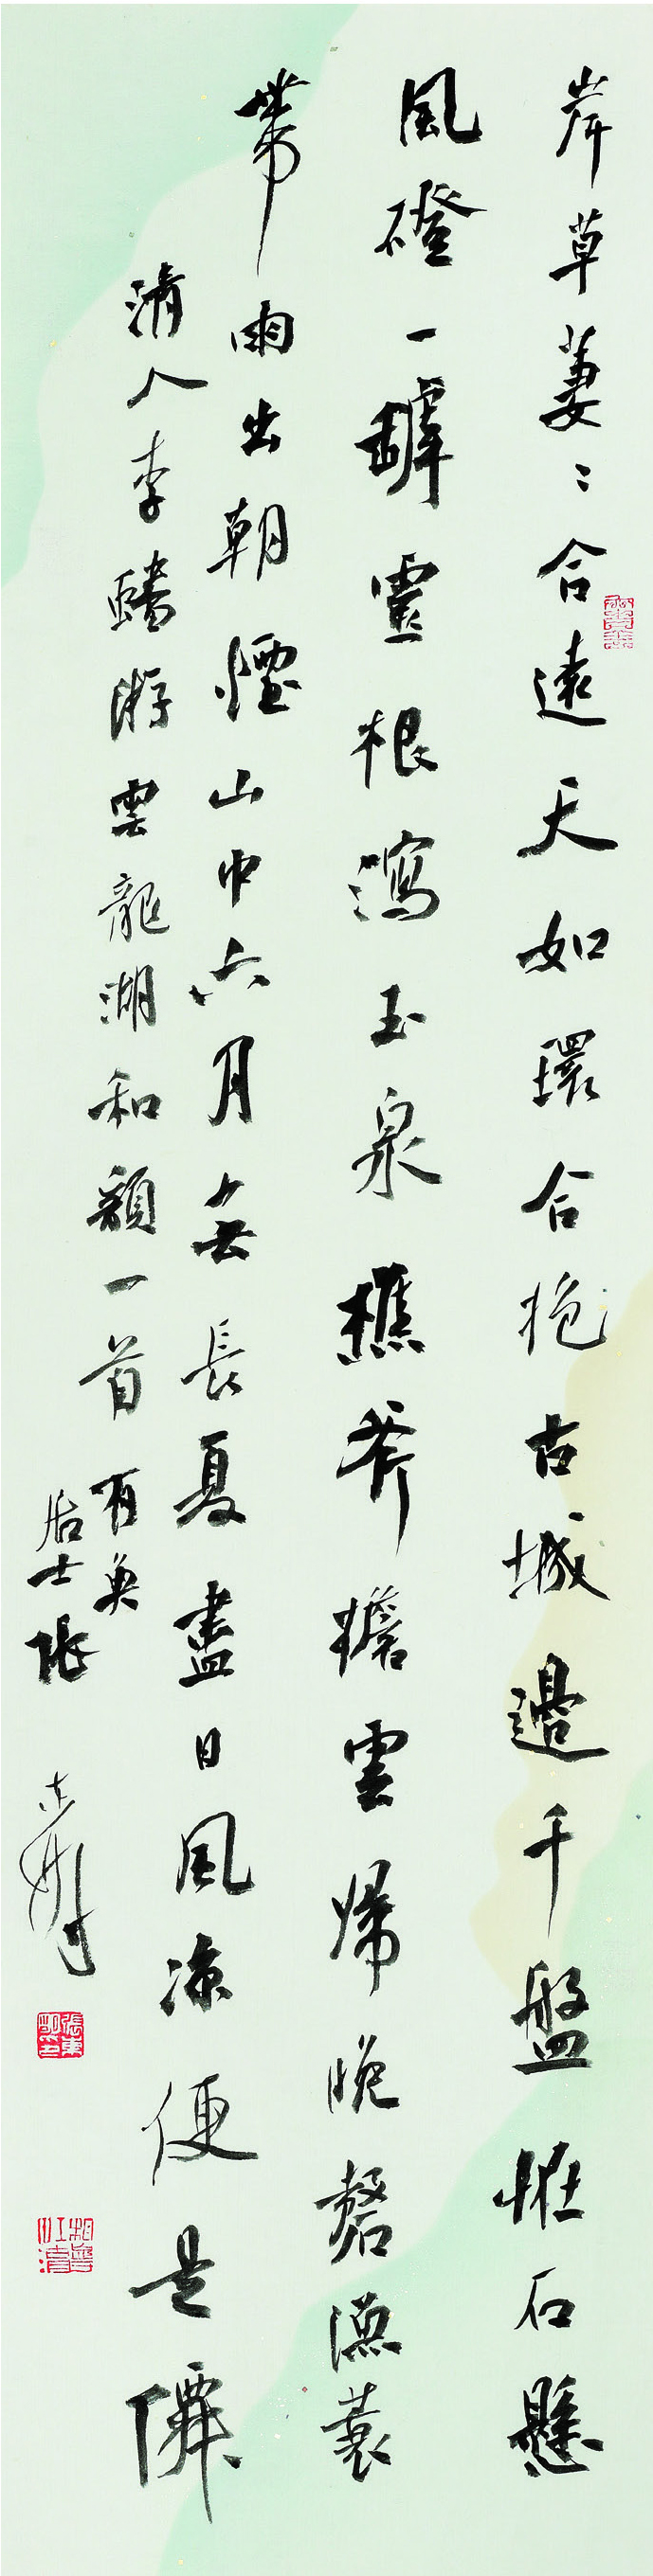 岸草萋〻合遠天如環合抱古城邊千盤怪石懸
風磴一罅靈根瀉玉泉樵斧擔雲歸晚磬漁蓑
帶雨出朝煙山中六月無長夏盡日風涼便是僊
清人李蟠游雲龍湖和韻一首
居士張